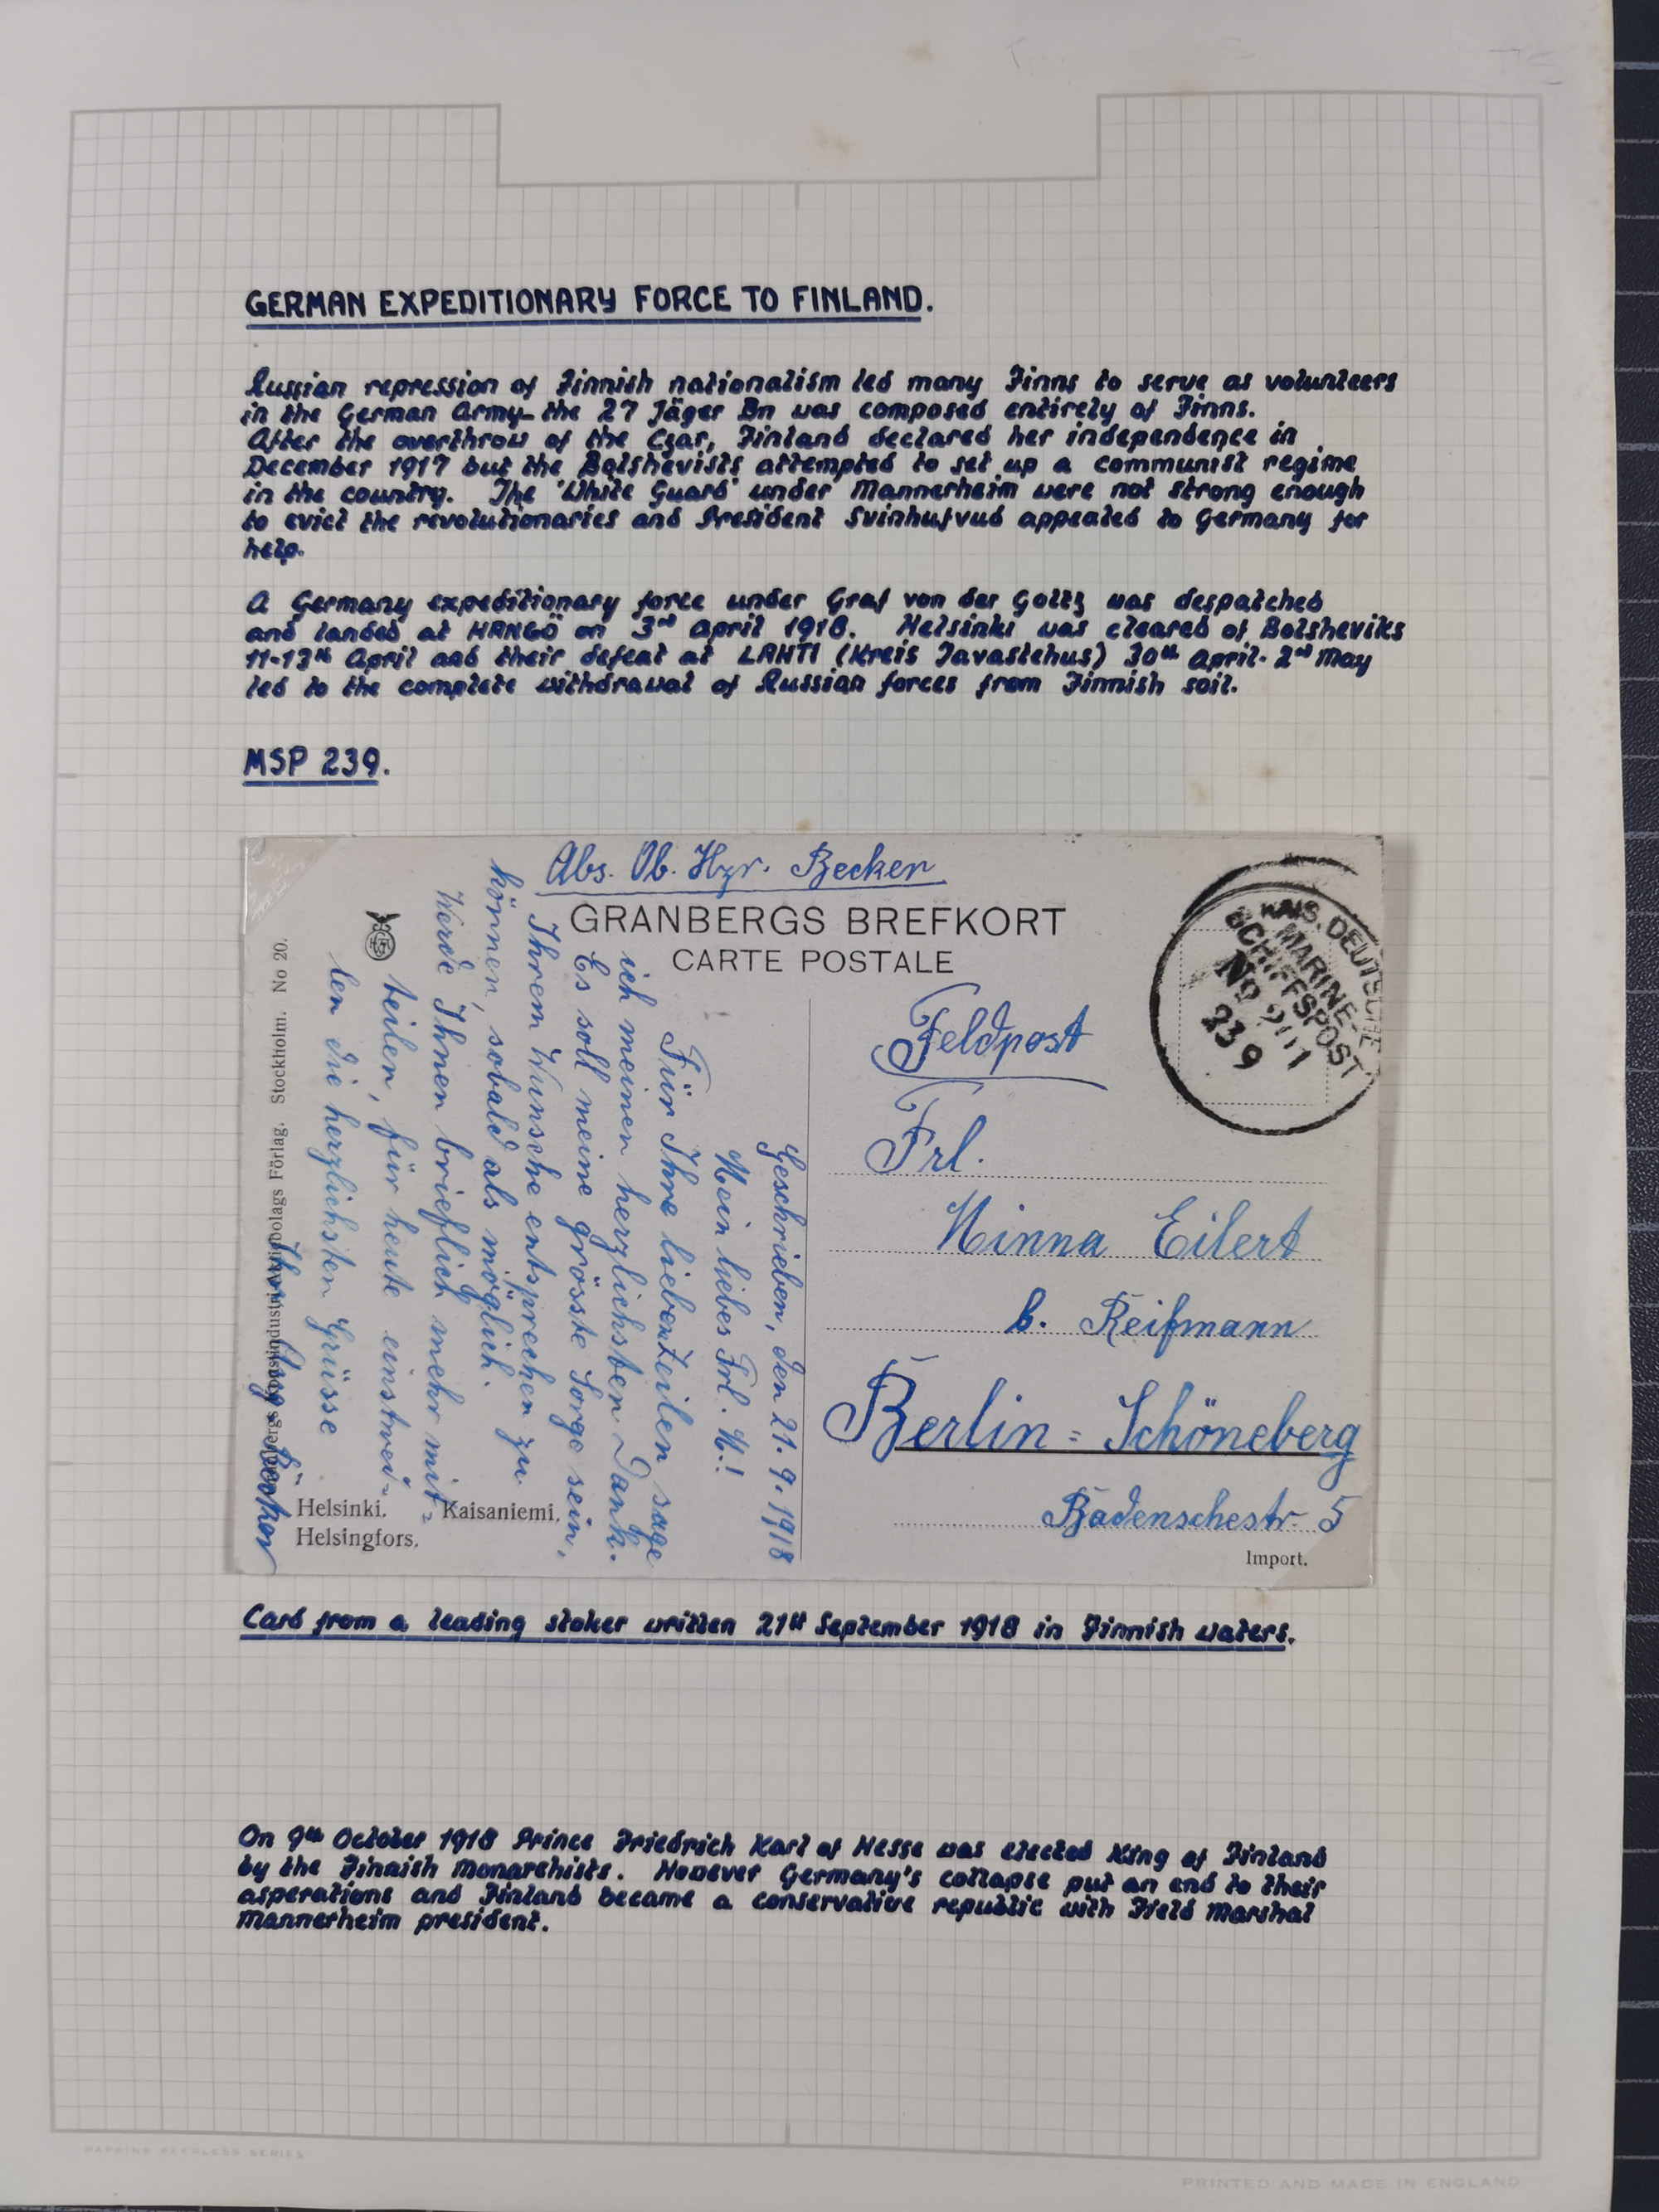 GERMAN EXPEDITIONARY FORCE TO FINLAND.
Russian repression of Finnish nationalism led many Finns to serve as volunteers
in the German Army - the 27 Jäger Bn was composed entirely of Finns.
After the overthrow of the Czar, Finland declared her independence in
December 1917 but the Bolshevists attempted to set up a communist regime
in the country. The 'White Guard' under Mannerheim were not strong enough
to evict the revolutionaries and President Svinhufvud appealed to Germany for
help.
A Germany expeditionary force under Graf von der Goltz was despatched
and landed at HANGÖ on 3rd April 1918. Helsinki was cleared of Bolsheviks
11-13th April and their defeat at LAHTI (Kreis Tavastehus) 30th April - 2nd May
led to the complete withdrawal of Russian forces from Finnish soil.
MSP 239.
Abs. Ob. Hzr. Becker
GRANBERGS BREFKORT
CARTE POSTALE
KAIS. DEUTSCHE
MARINE-
SCHIFFSPOST
No
239
Feldpost
Frl.
Minna Eilert
b. Reifmann
Berlin = Schöneberg
Badenschestr. 5
Import.
Geschrieben, den 21. 9. 1918
Mein liebes Frl. M.!
Für Ihre lieben Zeilen sage
ich meinen herzlichsten Dank.
Es soll meine grösste Sorge sein,
Ihrem Wunsche entsprechen zu
können, sobald als möglich.
Werde Ihnen brieflich mehr mit=
teilen, für heute einstwei=
len die herzlichsten Grüsse
Ihr Aug. Becker
Granbergs Konstindustri-Aktiebolags Förlag. Stockholm. No 20.
Helsinki. Kaisaniemi.
Helsingfors.
Card from a leading stoker written 21st September 1918 in Finnish waters.
On 9th October 1918 Prince Friedrich Karl of Hesse was elected King of Finland
by the Finnish Monarchists. However Germany's collapse put an end to their
asperations and Finland became a conservative republic with Field Marshal
Mannerheim president.
PEERLESS SERIES
PRINTED AND MADE IN ENGLAND